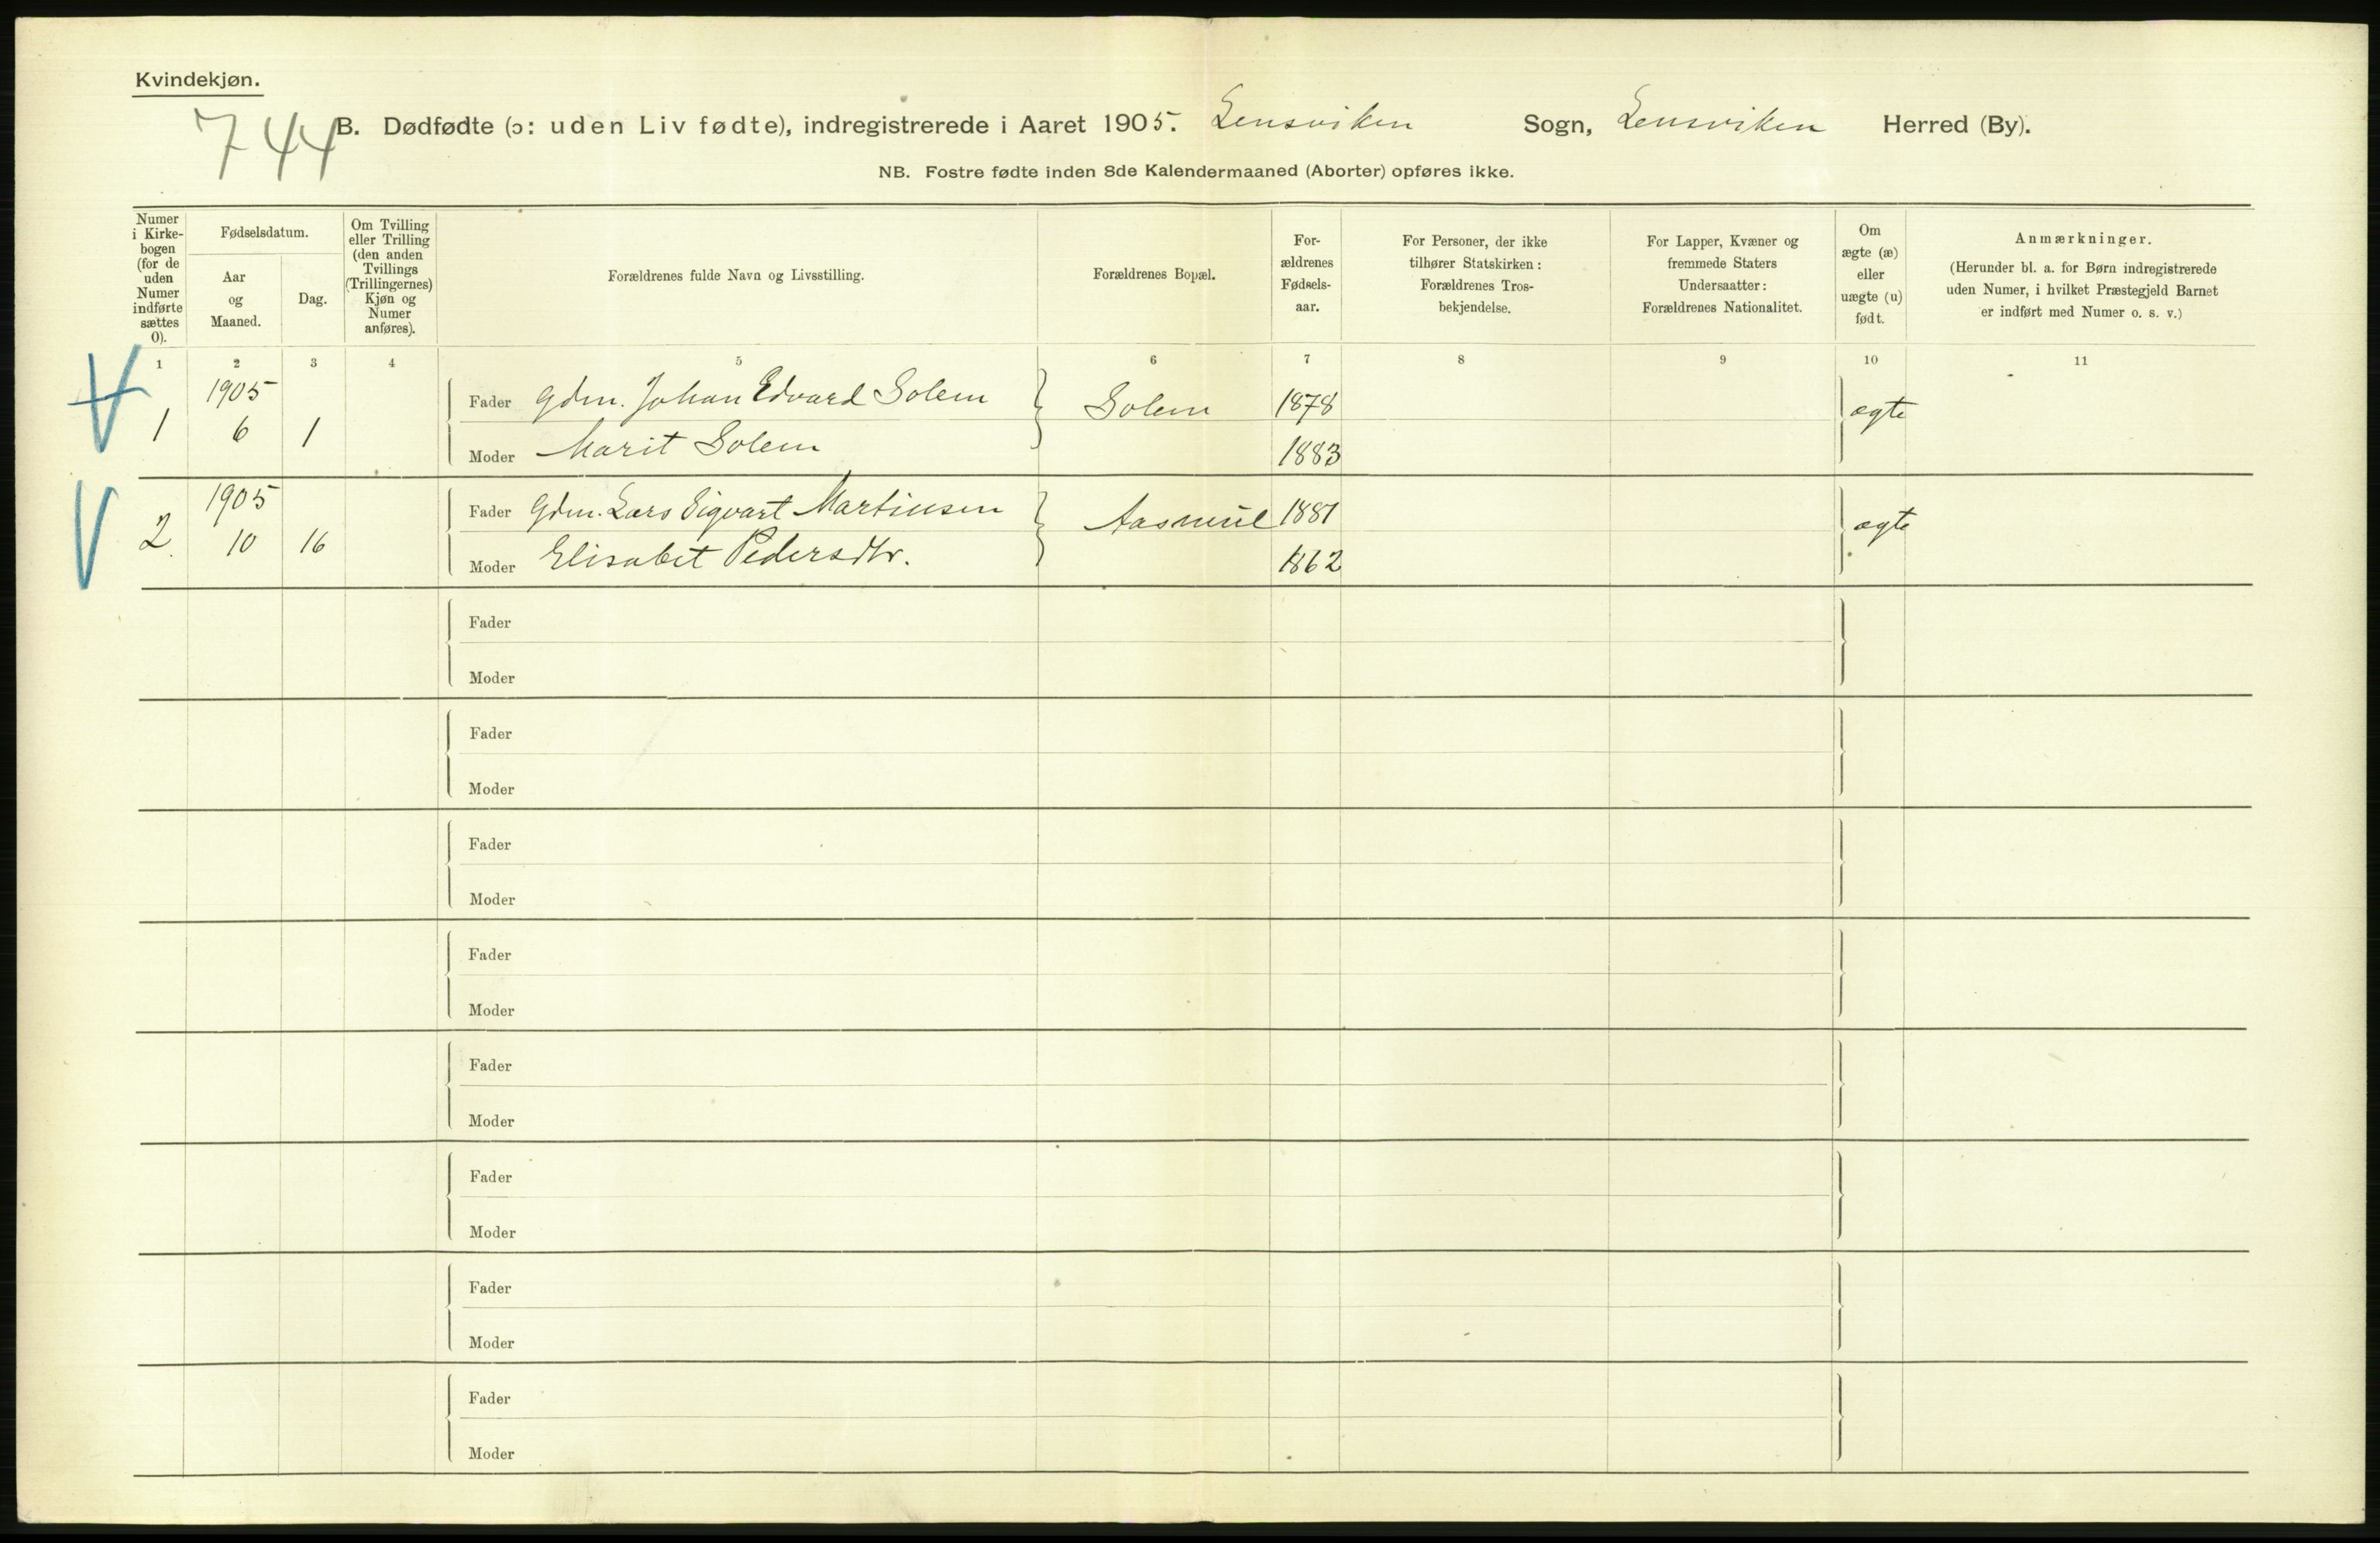 Kvindekjøn.
744
B. Dødfødte (ɔ: uden Liv fødte), indregistrerede i Aaret 1905. Lensviken Sogn, Lensviken Herred (By).
NB. Fostre fødte inden 8de Kalendermaaned (Aborter) opføres ikke.
Numer
i Kirke-
bogen
(for de
uden
Numer
indførte
sættes
0).
Fødselsdatum.
Aar
og
Maaned.
Dag.
Om Tvilling
eller Trilling
(den anden
Tvillings
(Trillingernes)
Kjøn og
Numer
anføres).
Forældrenes fulde Navn og Livsstilling.
Forældrenes Bopæl.
For-
ældrenes
Fødsels-
aar.
For Personer, der ikke
tilhører Statskirken:
Forældrenes Tros-
bekjendelse.
For Lapper, Kvæner og
fremmede Staters
Undersaatter:
Forældrenes Nationalitet.
Om
ægte (æ)
eller
uægte (u)
født.
Anmærkninger.
(Herunder bl. a. for Børn indregistrerede
uden Numer, i hvilket Præstegjeld Barnet
er indført med Numer o. s. v.)
1 2 3 4 5 6 7 8 9 10 11
1905
Fader Gdm. Johan Edvard Solem Solem 1878 ægte
1 6 1
Moder Marit Solem 1883
1905
Fader Gdm. Lars Sigvart Martinsen 1881 ægte
2. 10 16
Moder Elisabet Pedersdtr. 1862
Fader
Moder
Fader
Moder
Fader
Moder
Fader
Moder
Fader
Moder
Fader
Moder
Fader
Moder
Fader
Moder